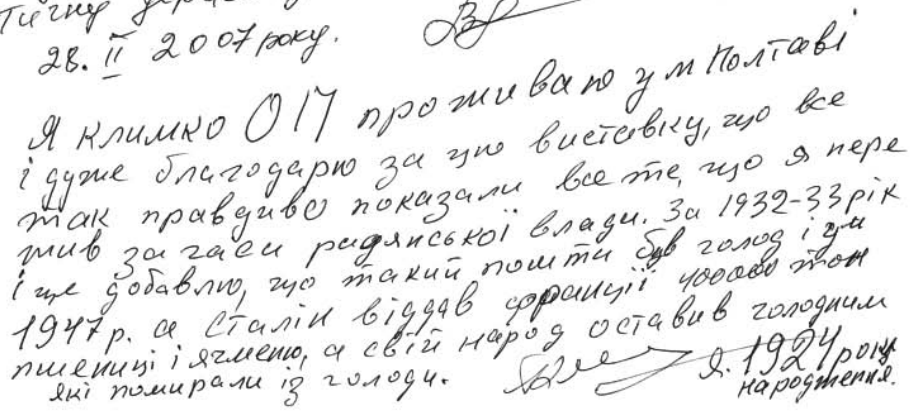 28. II 2007 року.
Я Климко О П проживаю у м Полтаві
і дуже благодарю за цю виставку, що все
так правдиво показали все те, що я пере
жив за часи радянської влади. За 1932-33 рік
і ще добавлю, що такий пошти був голод і у
1947 р. а Сталін віддав Франції тон
пшениці і ячменю, а свій народ оставив голодним
які помирали із голоду. Я. 1924 року
народження.